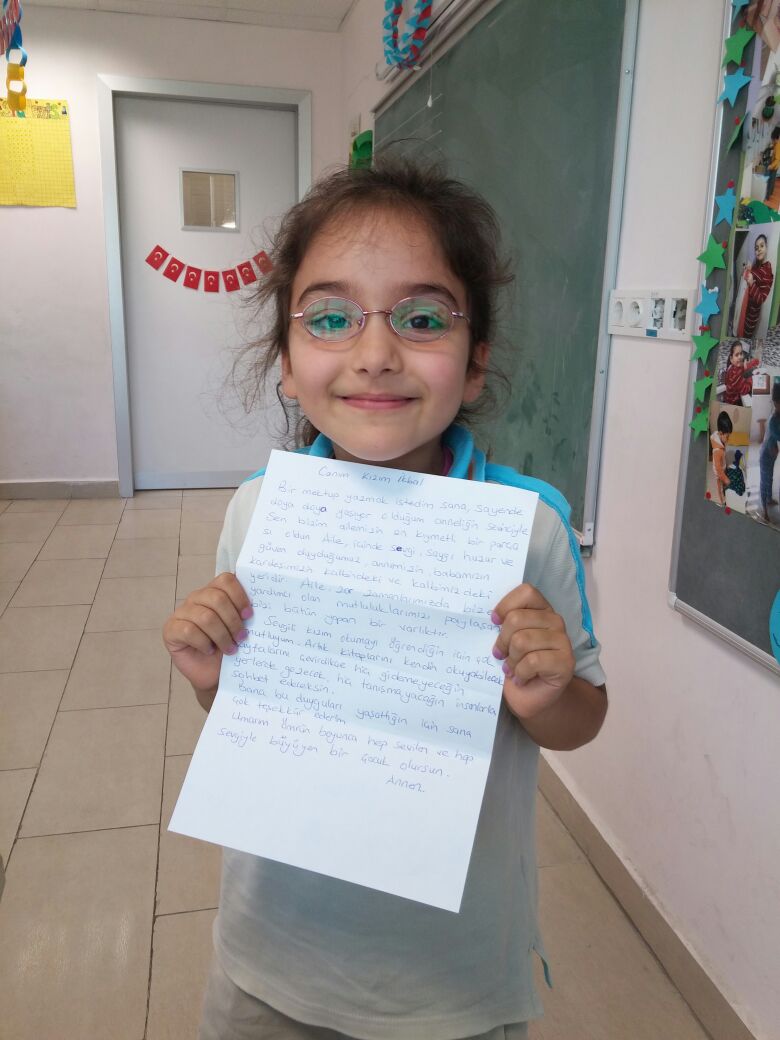 Canım Kızım İkbal
Bir mektup yazmak istedim sana, sayende
doya doya yaşıyor olduğum anneliğin sevinciyle
Sen bizim ailemizin en kıymetli bir parça
sı oldun Aile, içinde sevgi, saygı huzur ve
güven duyduğumuz, annemizin, babamızın
kardeşimizin kalbindeki ve kalbimizdeki
yeridir. Aile zor zamanlarımızda bize
yardımcı olan mutluluklarımızı paylaşan
bizi bütün yapan bir varlıktır.
Sevgili kızım okumayı öğrendiğin için çok
mutluyum. Artık kitaplarını kendin okuyabilecek
sayfalarını çevirdikçe hiç gidemeyeceğin
yerlerde gezecek, hiç tanışmayacağın insanlarla
sohbet edeceksin.
Bana bu duyguları yaşattığın için sana
çok teşekkür ederim
Umarım ömrün boyunca hep sevilen ve hep
sevgiyle büyüyen bir çocuk olursun.
Annen.